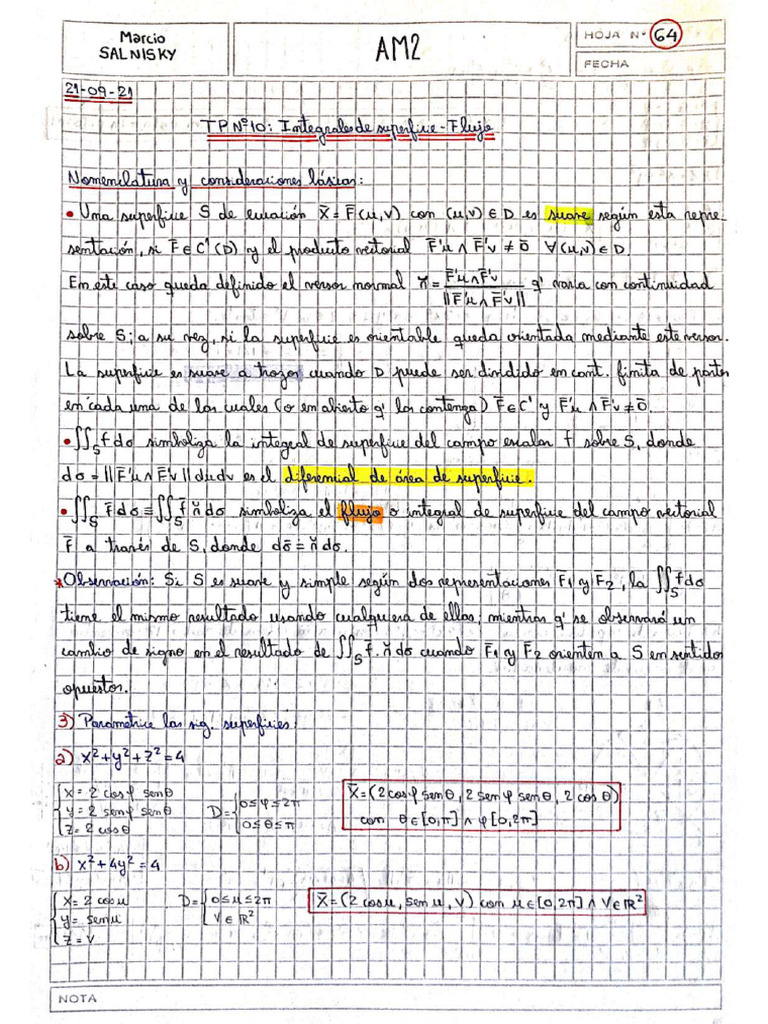 Marcio
SALNISKY
AM2
HOJA Nº 64
FECHA
21-09-21
TP Nº10: Integrales de superficie - Flujo
Nomenclatura y consideraciones básicas:
• Una superficie S de ecuación X̄ = F̄(μ,v) con (μ,v) ∈ D es suave según esta repre-
sentación, si F̄ ∈ C'(D) y el producto vectorial F̄'μ ∧ F̄'v ≠ 0̄ ∀(μ,v) ∈ D.
En este caso queda definido el versor normal n̆ = F̄'μ∧F̄'v / ||F̄'μ ∧ F̄'v|| q' varía con continuidad
sobre S; a su vez, si la superficie es orientable queda orientada mediante este versor.
La superficie es suave a trozos cuando D puede ser dividido en cant. finita de partes
en cada una de las cuales (o en abierto q' los contenga) F̄ ∈ C' y F̄'μ ∧ F̄'v ≠ 0̄.
• ∬_S f dσ simboliza la integral de superficie del campo escalar f sobre S, donde
dσ = ||F̄'μ ∧ F̄'v|| dμdv es el diferencial de área de superficie.
• ∬_S f̄ dσ̄ ≡ ∬_S f̄ n̆ dσ simboliza el flujo o integral de superficie del campo vectorial
f̄ a través de S, donde dσ̄ = n̆ dσ.
*Observación: Si S es suave y simple según dos representaciones F̄1 y F̄2, la ∬_S f dσ
tiene el mismo resultado usando cualquiera de ellas, mientras q' se observará un
cambio de signo en el resultado de ∬_S f̄. n̆ dσ cuando F̄1 y F̄2 orienten a S en sentidos
opuestos.
3) Parametrice las sig. superficies:
a) x²+y²+z²=4
{x = 2 cosφ senθ
{y = 2 senφ senθ D={0≤φ≤2π X̄=(2cosφ senθ, 2 senφ senθ, 2 cosθ)
{z = 2 cosθ {0≤θ≤π con θ∈[0,π] ∧ φ[0,2π]
b) x²+4y²=4
{x= 2 cosμ D={0≤μ≤2π X̄=(2 cosμ, senμ, v) con μ∈[0,2π] ∧ v∈ℝ²
{y= senμ {v∈ℝ²
{z = v
NOTA